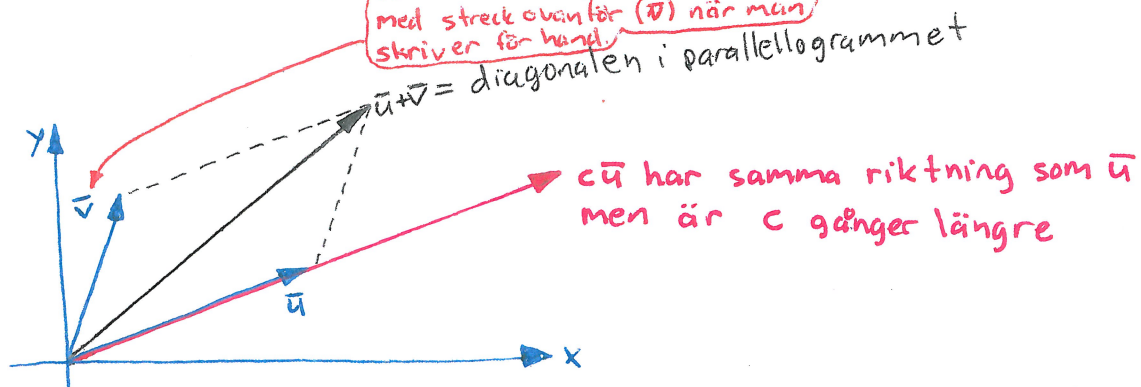 med streck ovanför (v̄) när man
skriver för hand.
ū+v̄ = diagonalen i parallellogrammet
y
v̄
cū har samma riktning som ū
men är c gånger längre
ū
x